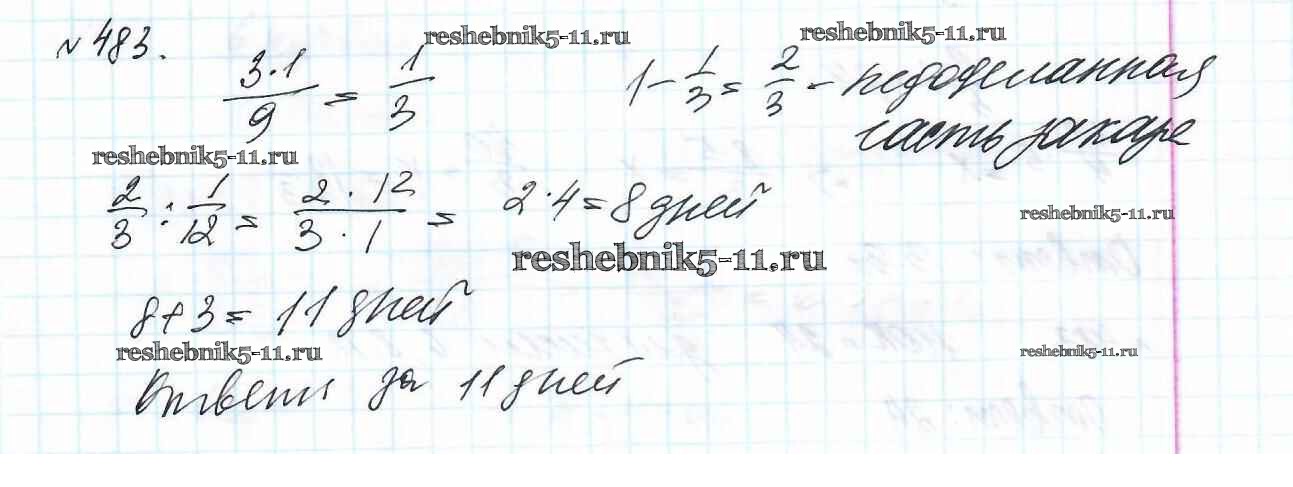 № 483.
reshebnik5-11.ru
reshebnik5-11.ru
3·1/9 = 1/3
1 - 1/3 = 2/3 - недоделанная
часть заказа
reshebnik5-11.ru
2/3 : 1/12 = 2·12/3·1 = 2·4 = 8 дней
reshebnik5-11.ru
reshebnik5-11.ru
8+3= 11 дней
reshebnik5-11.ru
reshebnik5-11.ru
Ответ: за 11 дней